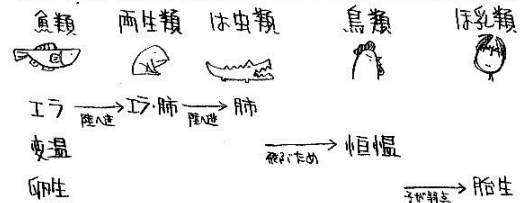 魚類 両生類 は虫類 鳥類 ほ乳類
エラ 陸へ進 エラ・肺 陸へ進 肺
変温 飛ぶため 恒温
卵生 子が弱点 胎生